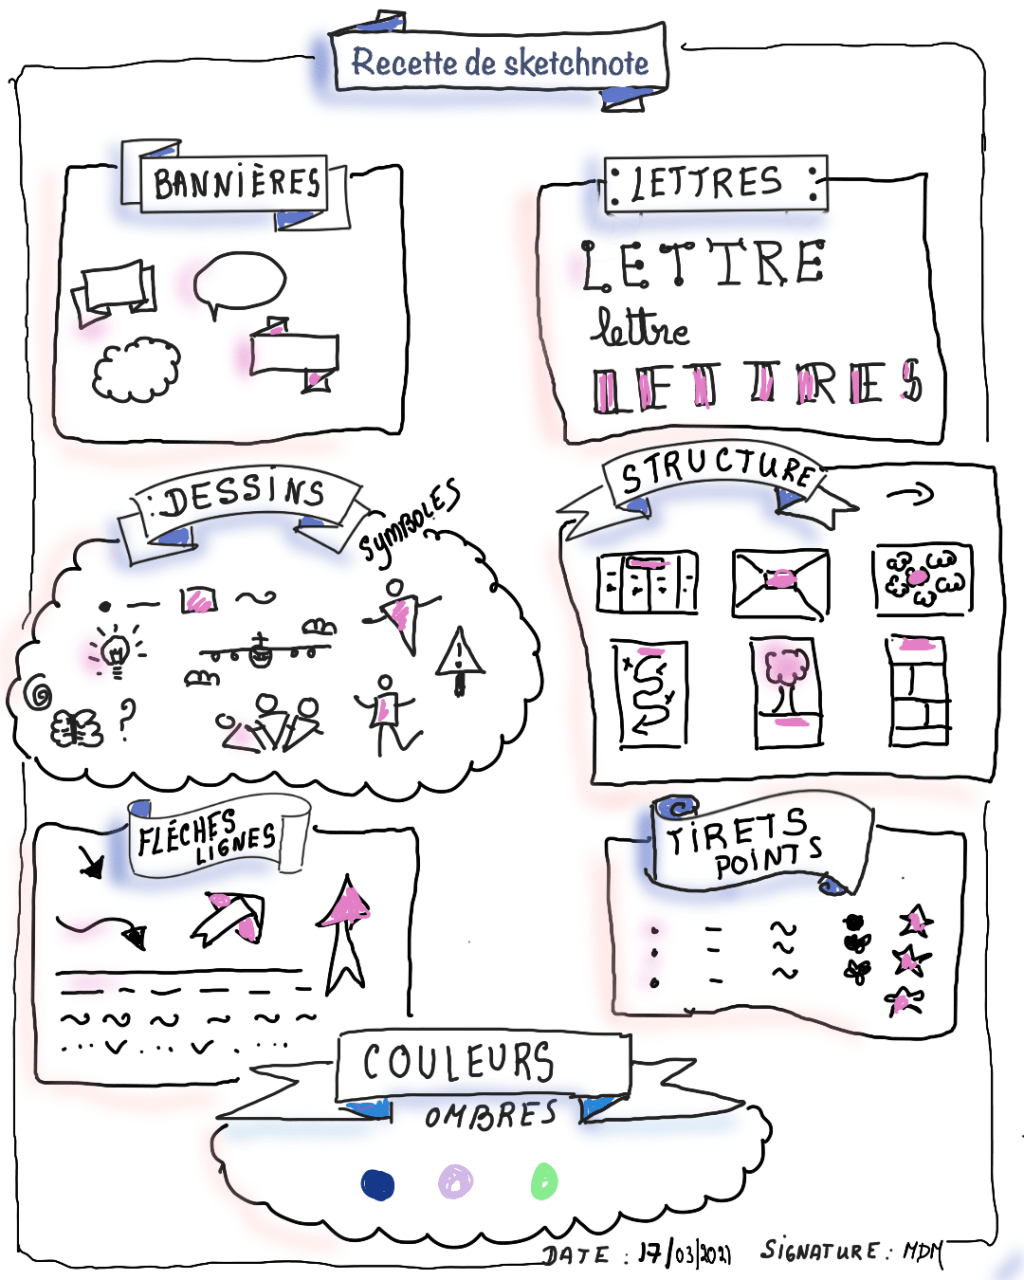 Recette de sketchnote
BANNIÈRES
LETTRES
LETTRE
lettre
LETTRES
DESSINS
SYMBOLES
STRUCTURE
?
FLÉCHES
LIGNES
TIRETS
POINTS
COULEURS
OMBRES
DATE : 17/03/2021 SIGNATURE : MDM